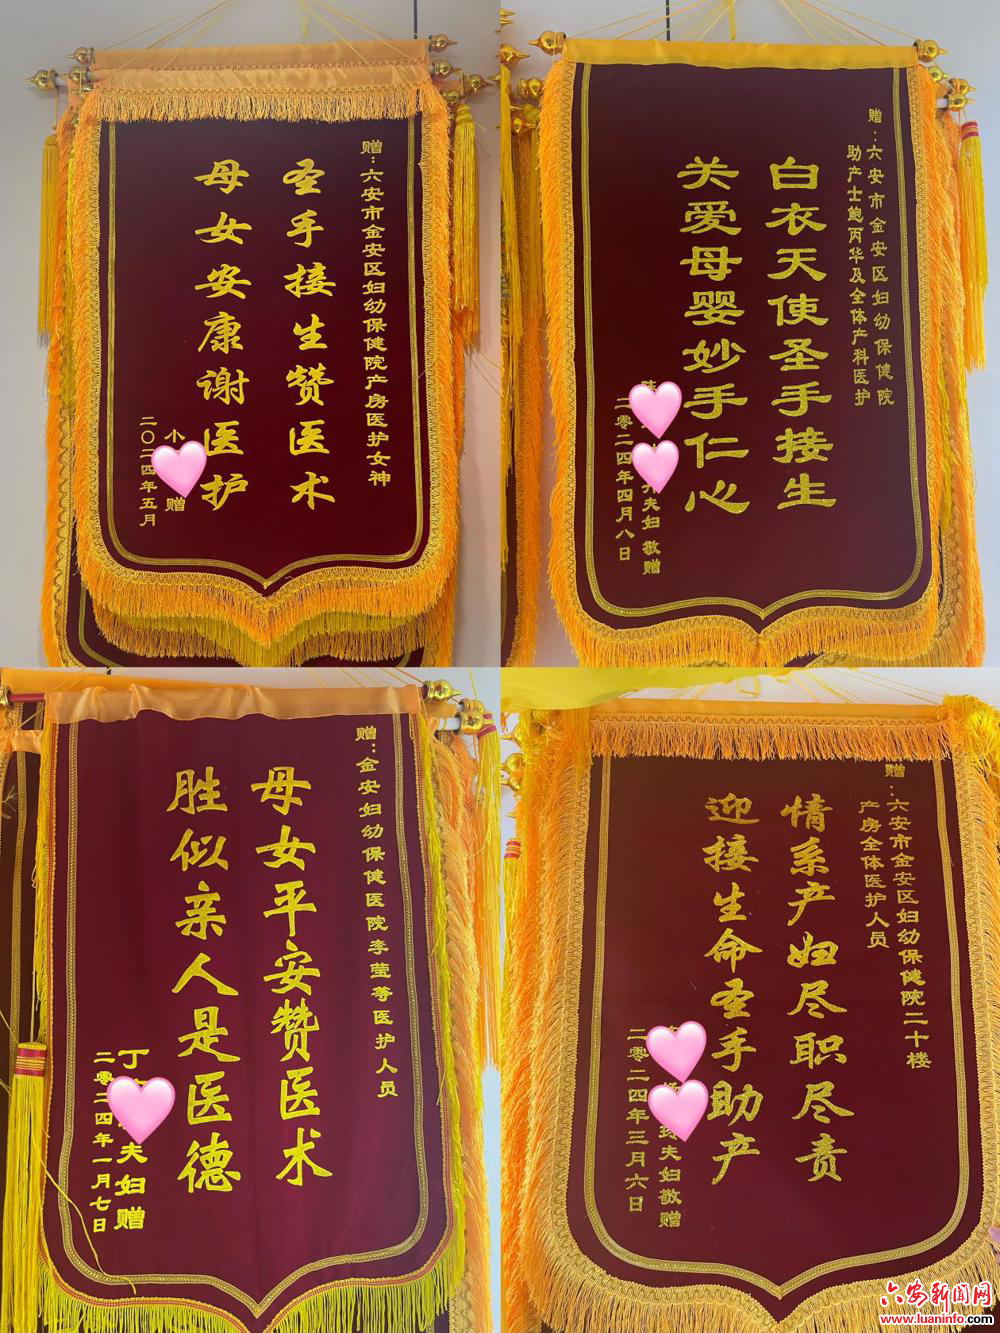 赠：六安市金安区妇幼保健院产房医护女神
圣手接生赞医术
母女安康谢医护
小
赠
二〇二四年五月
赠：六安市金安区妇幼保健院
助产士鲍丙华及全体产科医护
白衣天使圣手接生
关爱母婴妙手仁心
夫妇 敬赠
二零二四年四月八日
赠：金安妇幼保健医院李莹等医护人员
母女平安赞医术
胜似亲人是医德
丁
夫妇赠
二零二四年一月七日
赠：六安市金安区妇幼保健院二十楼
产房全体医护人员
情系产妇尽职尽责
迎接生命圣手助产
夫妇敬赠
二零二四年三月六日
六安新闻网
www.luaninfo.com